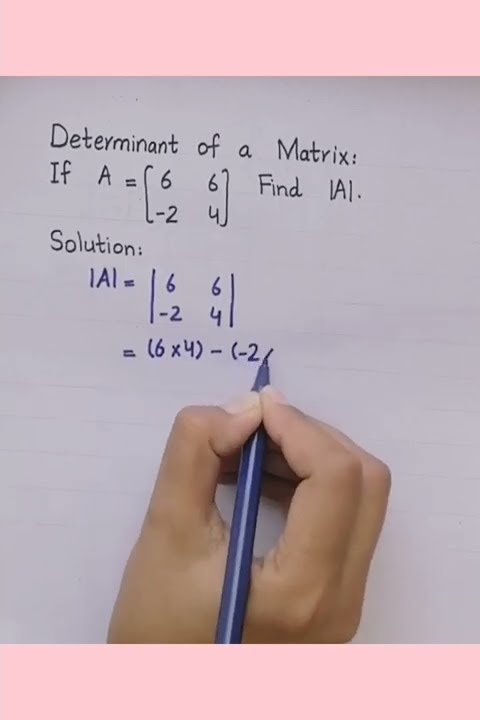 Determinant of a Matrix:
If A = [6 6] Find |A|.
[-2 4]
Solution:
|A| = |6 6|
|-2 4|
= (6×4) - (-2